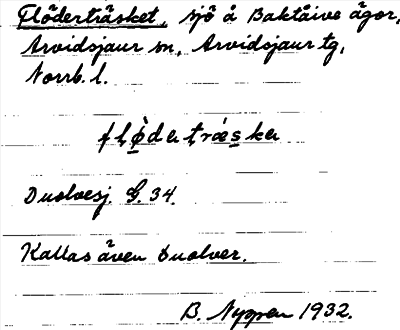 Flöderträsket, sjö å Baktåive ägor,
Arvidsjaur sn, Arvidsjaur tg,
Norrb. l.
flǿdertrǽsker
Duolvesj. G. 34.
Kallas även Duolver.
B. Nyppen 1932.